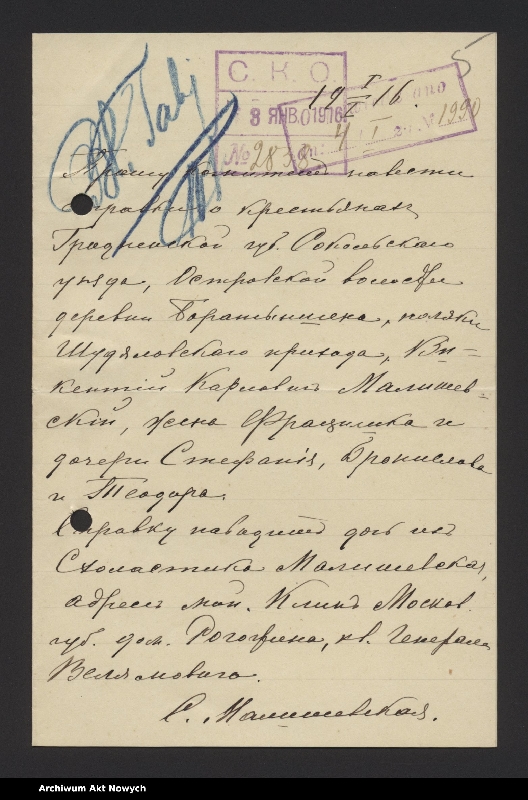 5
С. К. О.
8 ЯНВ 1916
№ 2838
19 I 16.
4 I
1990
Прошу комитетъ навести
справки о крестьянахъ
Гродненской губ. Сокольскаго
уѣзда, Островской волости
деревни Боратынщена, поляки
Шудяловскаго прихода, Ви-
кентій Карловичъ Малишев-
скій, жена Францишка и
дочери Стефанія, Бронислава
и Теодора.
Справку наводитъ дочь ихъ
Схоластика Малишевская,
адресъ мой. Клинъ Москов.
губ. дом. Рогожина, кв. Генерала
Вельяноваго.
С. Малишевская.
Archiwum Akt Nowych